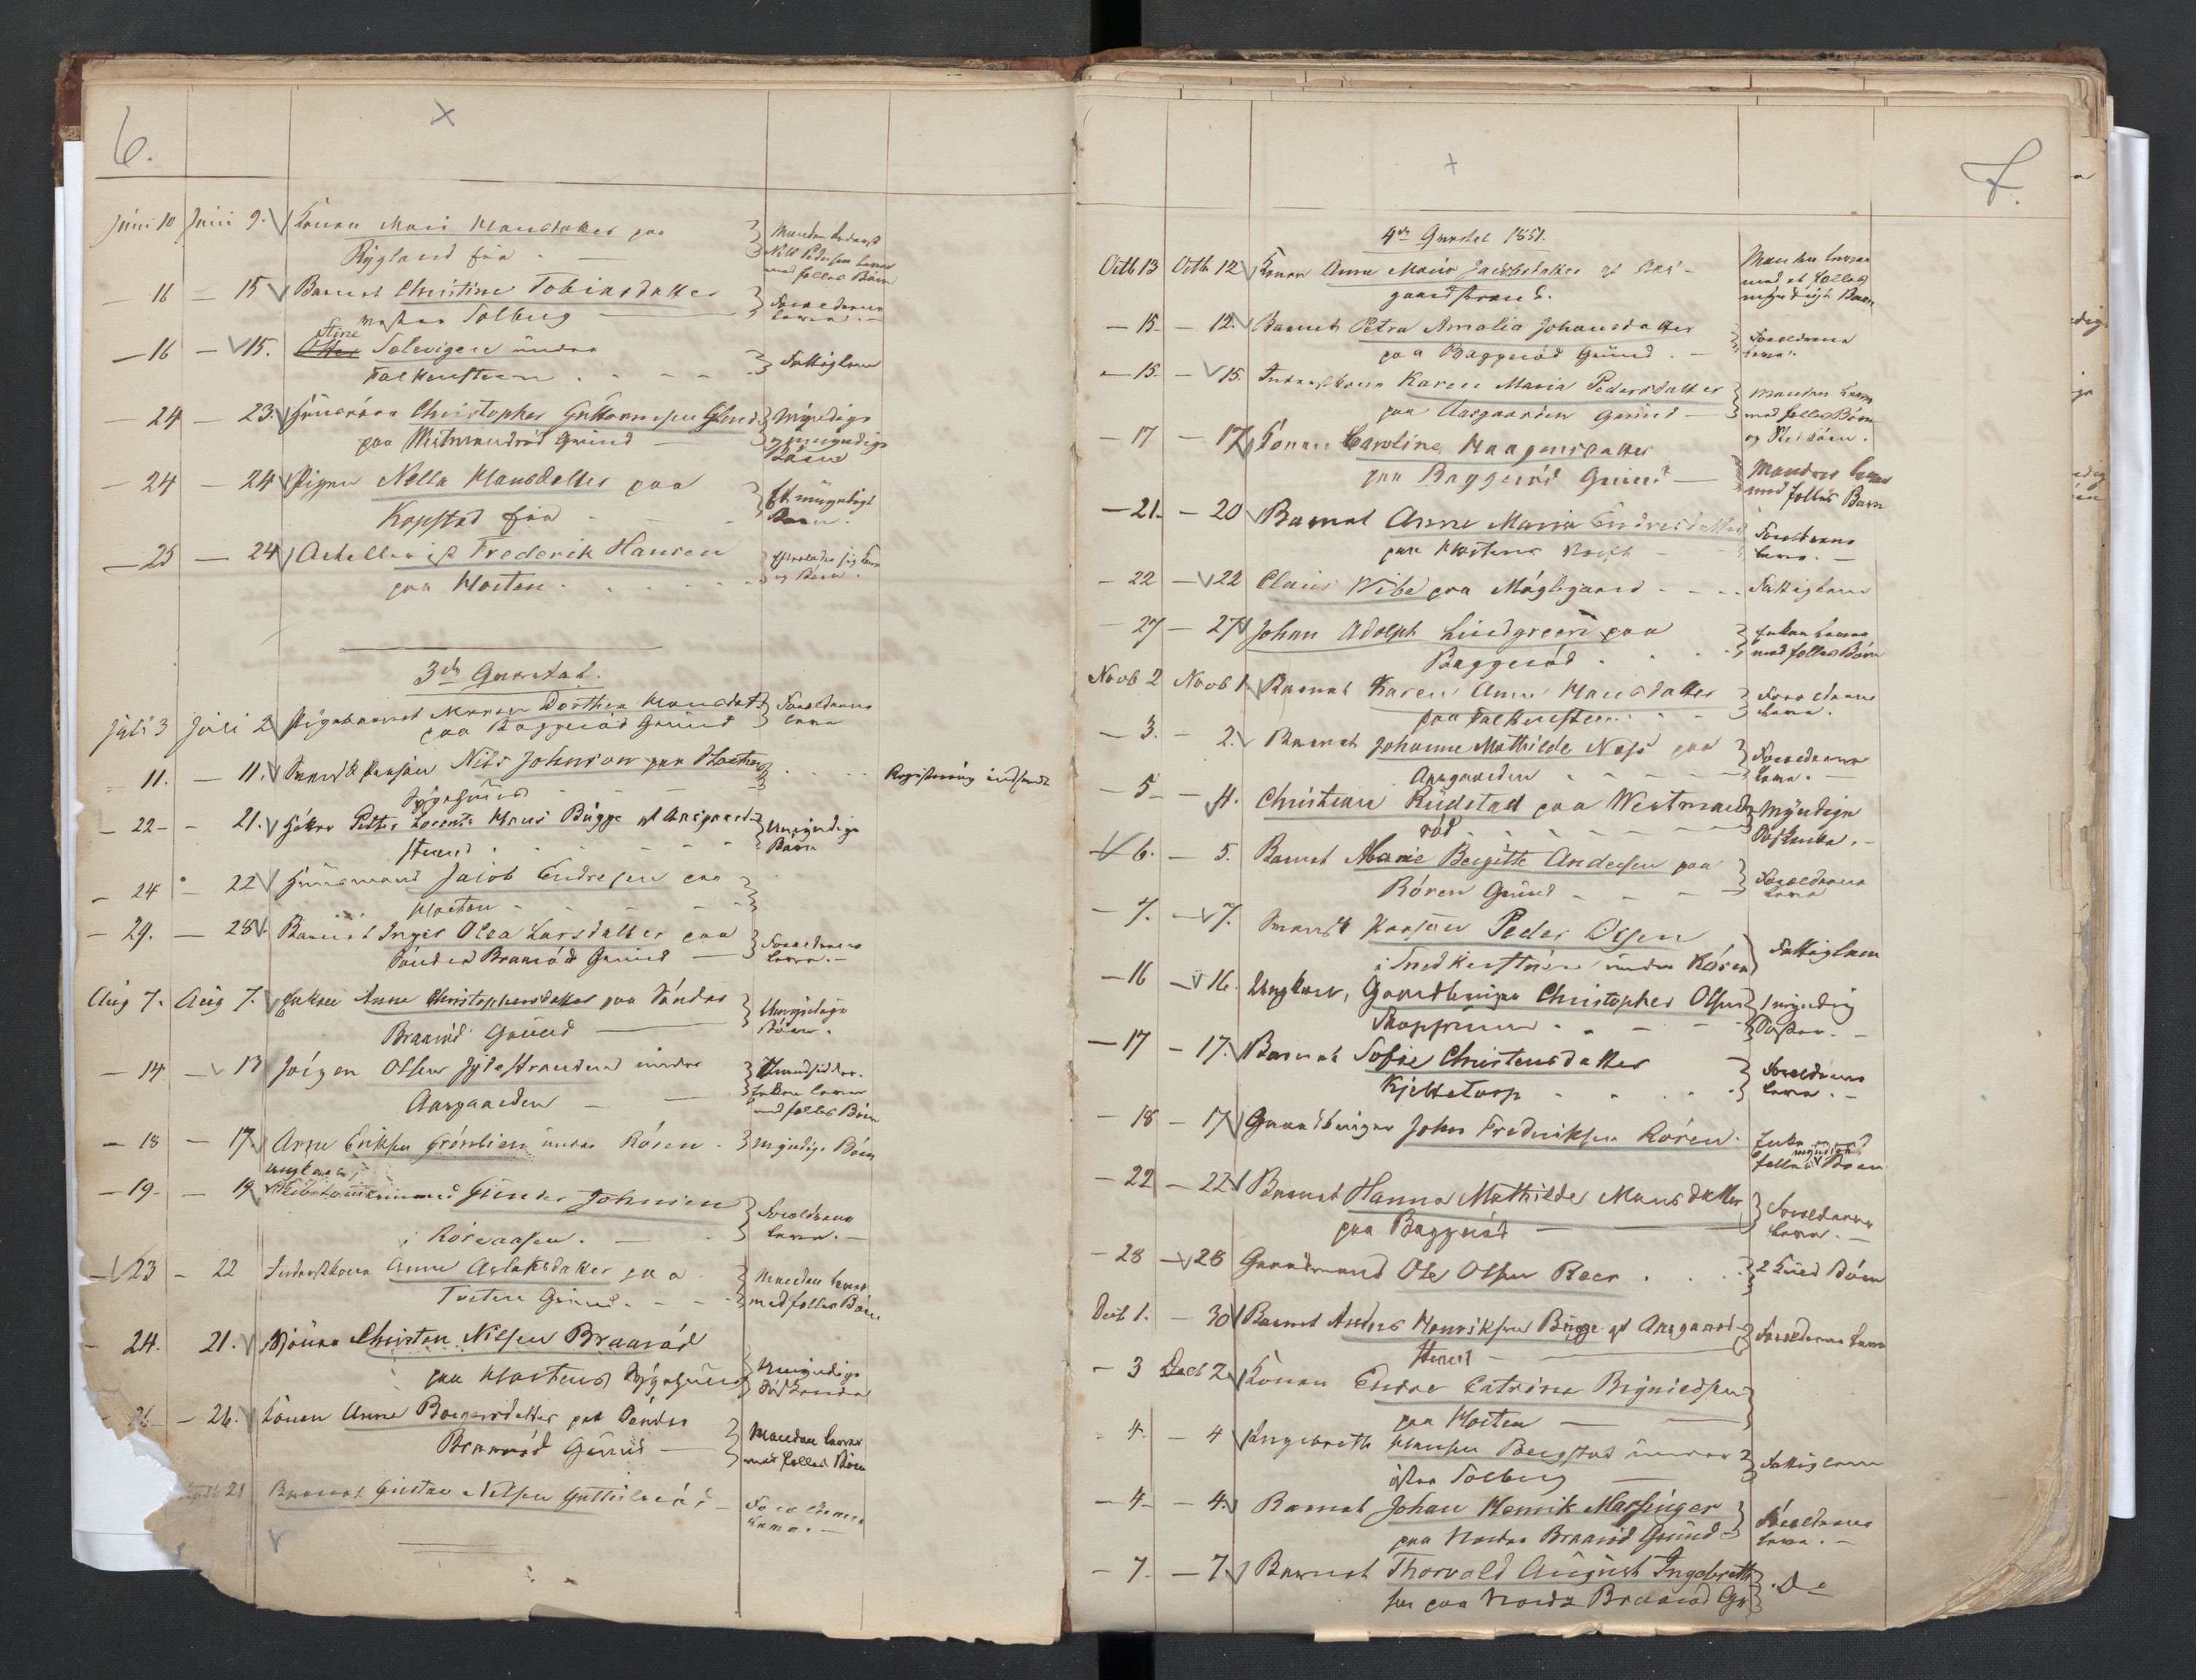 6.
Juni 10 Juni 9. Konen Mari Hansdatter paa
Rygland fra
Manden Inderst
Nils Pedersen lever
med fælles Børn
— 16 — 15 Barnet Christine Tobiasdatter
Solberg
Forældrene
lever. —
— 16 — 15. Stine
Solevigen under
Falkensteen
Fattiglem
— 24 — 23. Christopher Guttormsen
paa Grund
Myndige
og umyndige
Børn
— 24 — 24 Pigen Nella Hansdatter paa
Kopstad
Et umyndigt
Barn.
— 25 — 24 Frederik Hansen
paa Horten
efterlader sig
og Børn.
3die Qvartal.
Juli 3 Juli 2 Pigebarnet Maren Dorthea Hansdat
paa Baggerød Grund
Forældrene
lever
11. — 11. Nils Johnson paa Horten
Sygehuus
Registrering indsendt
— 22 — 21. Petter Lorents Hans Bugge af Aasgaard-
strand
Umyndige
Børn
— 24 — 22 Huusmand Jacob Endresen paa
Horten
— 29. — 28. Barnet Inger Olea Larsdatter paa
Søndre Braarød Grund
Forældrene
lever. —
Aug 7. Aug 7. Enken Anne Christophersdatter paa Søndre
Braarød Grund
Umyndige
Børn.
— 14 — 13 Jørgen Olsen under
Aasgaarden
Huusfader.
Enken lever
med fælles Børn
— 18 — 17. Arne Eriksen Grønlien under Røren.
Myndige Børn
— 19 — 19 Ungkarl,
Gunder Johnsen
i Røreaasen.
Forældrene
lever. —
— 23 — 22 Inderstkone Anne Aslaksdatter paa
Torten Grund
Manden lever
med fælles Børn
— 24. 21. Christen Nilsen Braarød
paa Hortens Sygehuus
Umyndige
Søskende
— 26. — 26. Konen Anne Borgersdatter paa Søndre
Braarød Grund
Manden lever
med fælles Børn
21 Barnet Gustav Nilsen
Forældrene
lever. —
7.
4de Qvartal 1851.
Octb 13 Octb 12 Konen Anne Maria Jacobsdatter af Aas-
gaardstrand.
Manden lever
med et fælles
umyndigt Barn
— 15 — 12. Barnet Petra Amalia Johansdatter
paa Baggerød Grund
Forældrene
lever.
— 15 — 15. Inderstkone Karen Maria Pedersdatter
paa Aasgaarden Grund
Manden lever
med fælles Børn
og Stedbørn.
— 17 — 17 Konen Caroline Haagensdatter
paa Baggerød Grund
Manden lever
med fælles Børn
— 21. — 20 Barnet Anne Maria Endresdatter
paa Hortens
Forældrene
lever. —
— 22 — 22 Claus Wibe paa
Fattiglem
— 27 — 27 Johan Adolph Lindgreen paa
Baggerød
Enken lever
med fælles Børn
Novb 2 Novb 1. Barnet Karen Anne Hansdatter
paa Falkensteen
Forældrene
lever.
— 3. — 2. Barnet Johanne Mathilde Næss paa
Aasgaarden
Forældrene
lever. —
— 5 — 4. Christian Rudstad paa Westmand-
rød
Myndige
Søskende. —
— 6. — 5. Barnet Marie Bergitte Andersen paa
Røren Grund
Forældrene
lever
— 7. — 7. Peder Olsen
i under Røren
Fattiglem
— 16 — 16. Ungkarl, Gaardbruger Christopher Olsen
Skoppum
1 myndig
Søster. —
— 17 — 17. Barnet Sofie Christensdatter
Kjelletorp
Forældrene
lever. —
— 18 — 17 Gaardbruger John Fredriksen Røren.
Enke med
myndige
fælles Børn
— 22 — 22 Barnet Hanna Mathilde Hansdatter
paa Baggerød
Forældrene
lever. —
— 28 — 28 Gaardmand Ole Olsen Beer
2 Kuld Børn
Decb 1. — 30 Barnet Andrs Henriksen Bugge af Aasgaard-
strand
Forældrene lever
— 3 Decb 2 Konen Catrine
paa Horten
4. — 4 Ingebreth Hansen Bergstad under
østre Solberg
Fattiglem
— 4. — 4. Barnet Johan Henrik Massinger
paa Nordre Braarød Grund
Forældrene
lever. —
— 7. — 7. Barnet Thorvald August Ingebreth
sen paa Nordre Braarød Gr
Do